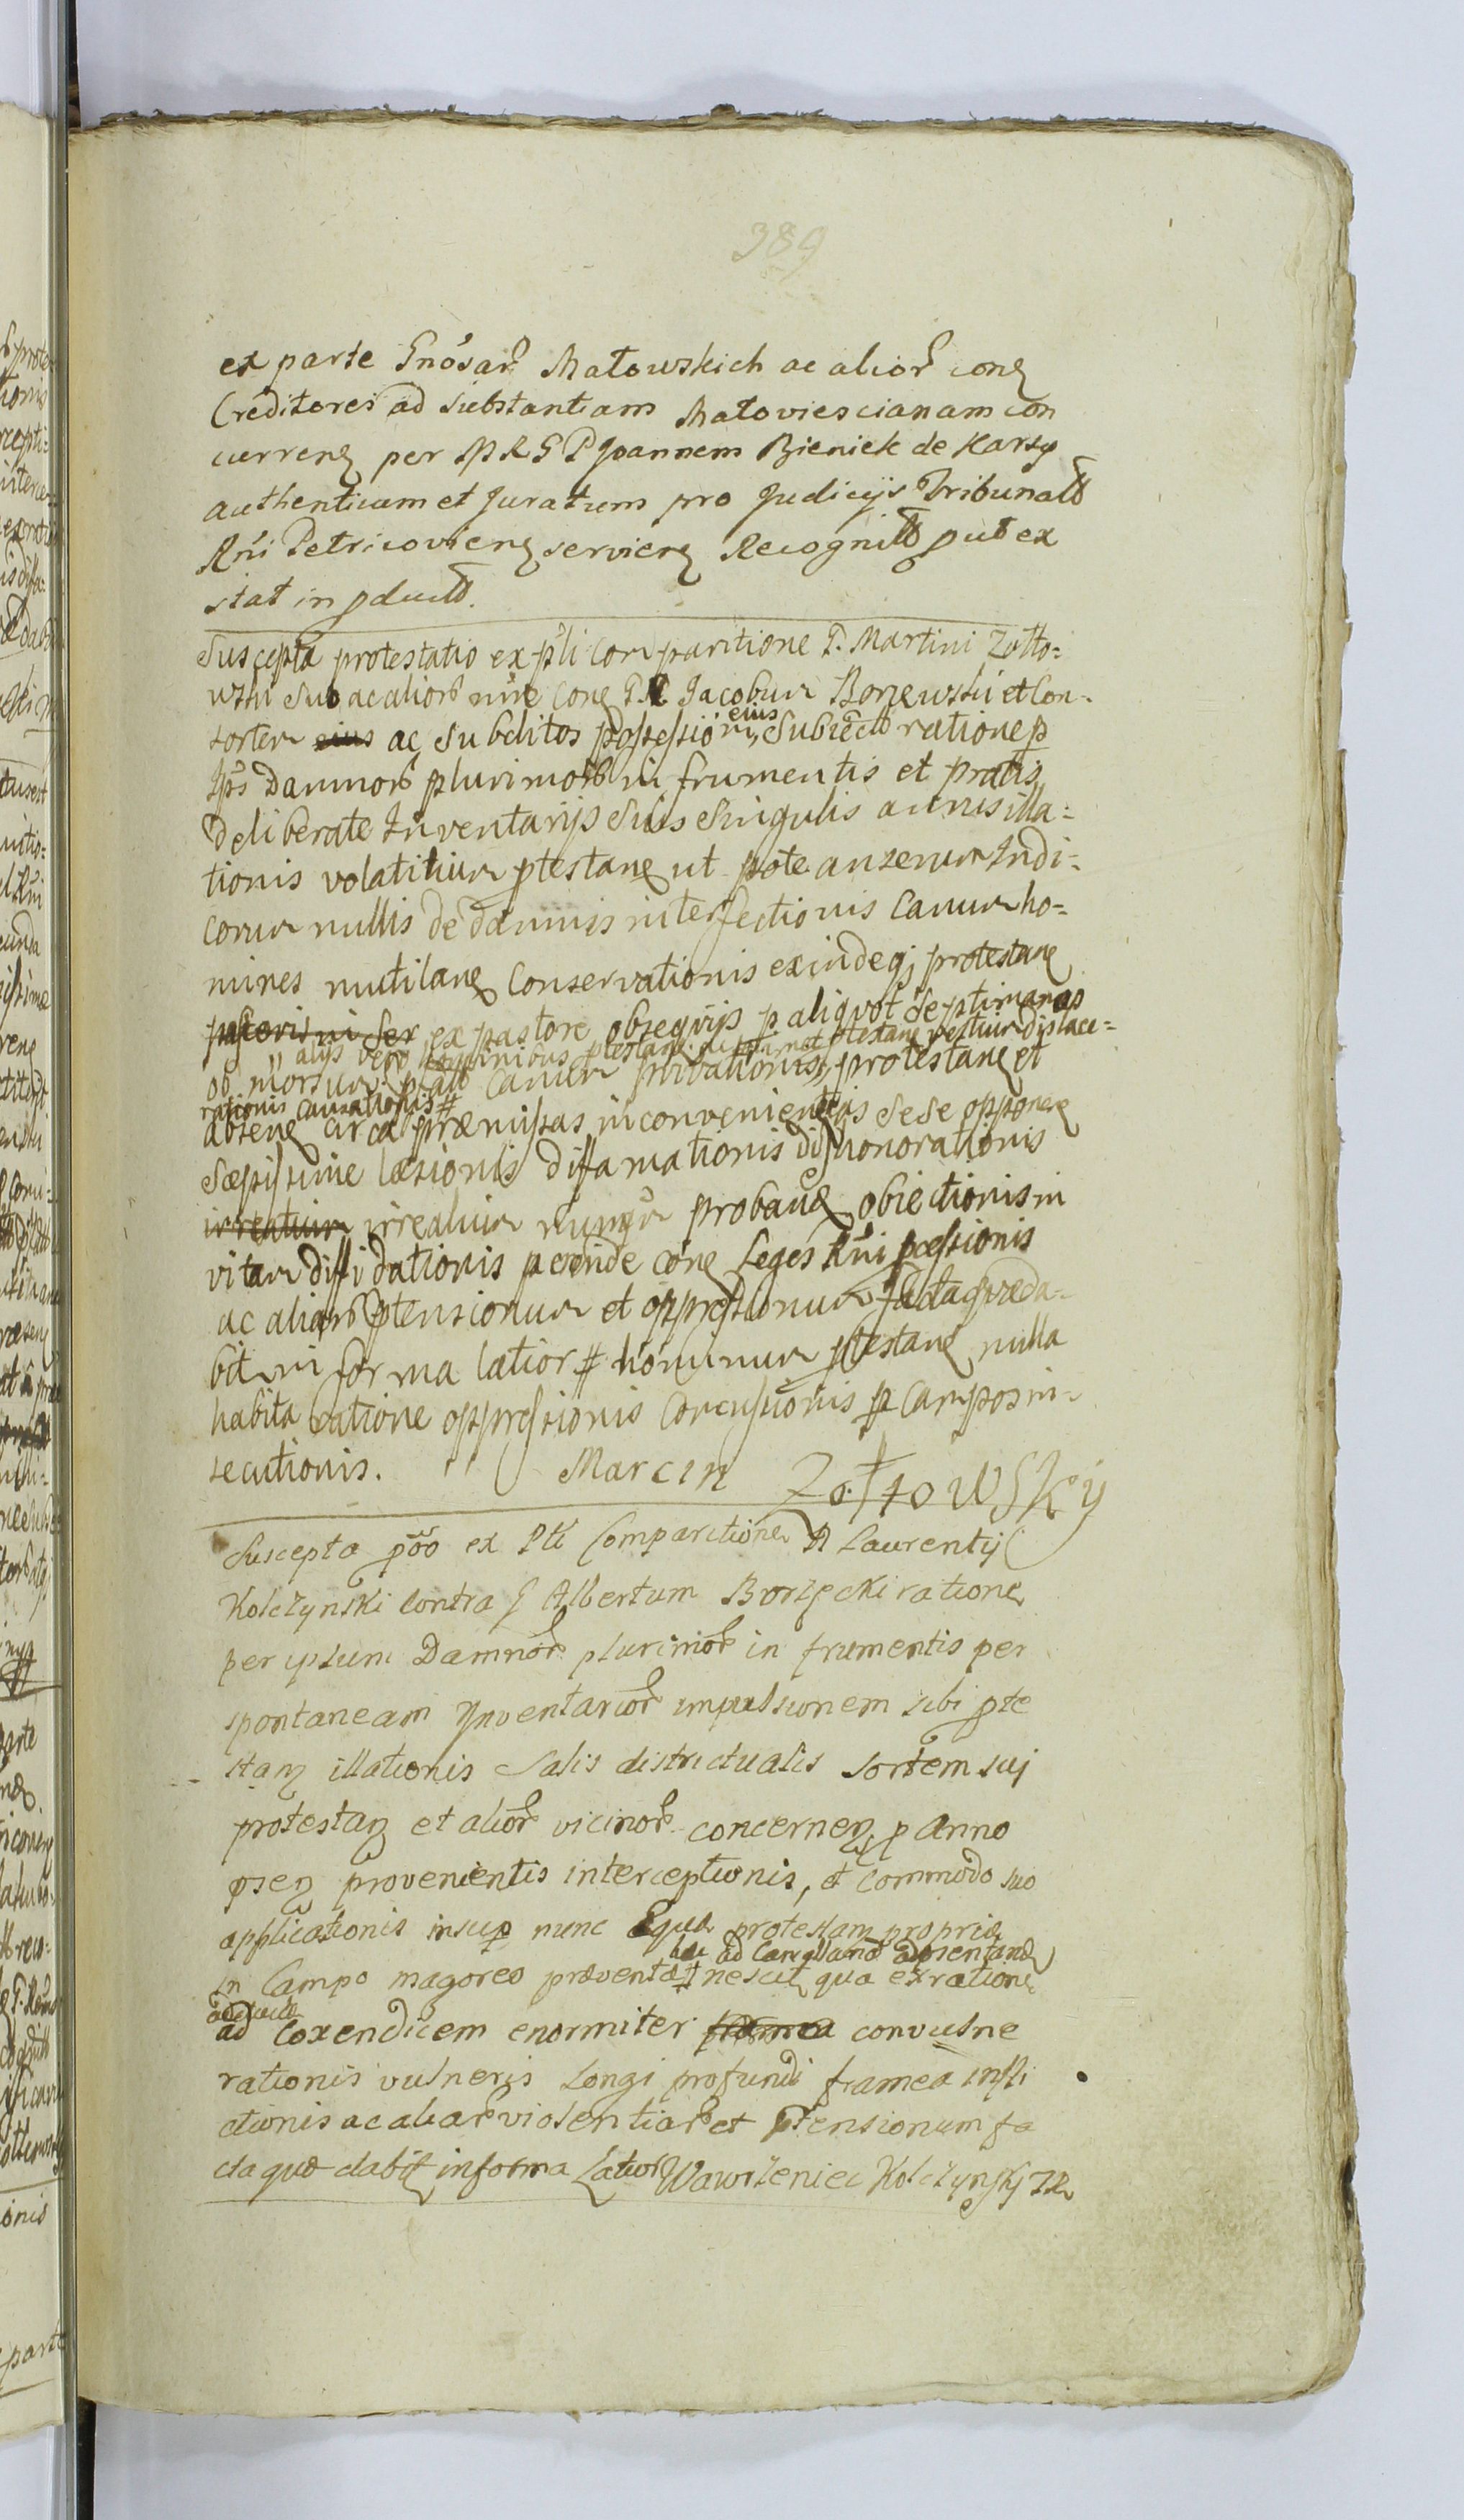 389
ex parte Gnosar Małowskich ac alior conq
Creditores ad substantiam Małoviescianam con
currenq per MRGP Joannem Bieniek de Karsy
authenticum et Juratum pro Judicijs Tribunalb
Rni Petricovienq servienq Recognitb put ex
stat in pductb.
Suscepta protestatio ex pti comparitione G. Martini Zołto=
wski suo ac alior nne conq G. Jacobum Borzewski et Con=
sortem eius ac subditos possessioni eius subiectb ratione p
Ips damnor plurimorb in frumentis et pratis
deliberate Inventarijs suis singulis annis illa=
tionis volatilium ptestanq ut pote anserum Indi=
corum nullis de damnis interfectionis Canum ho=
mines mutilanq Conservationis exindeqj protestanq
ex pastore obsequijs p aliquot septimanas
alijs vero hominibus ptestanq ptestanq vestium dislace=
ob morsum Canum privationis, protestanq et
rationis causationis #
absenq circa præmissas inconvenientias sese opponenq
sæpissime læsionis diffamationis dishonorationis
irreatum irreatum nunqr probanq obiectionis in
vitam diffidationis perinde conq Leges Rni pcessionis
ac aliarb ptensionum et oppressionum facta quæ da=
bit in forma latior # hominum ptestanq nulla
habita ratione oppressionis Concussionis p Campos in=
secutionis. Marcin Zołtowsky
Suscepta poo ex Pti Comparitione Laurentij
Kolczynski contra G Albertum Borzęcki ratione
per ipsum Damnor plurimor in frumentis per
spontaneam Ynventarior impulsionem sibi pte
stanq illationis Salis districtualis sortem sui
protestanq et alior vicinor concernenq p Anno
psenq provenientis interceptionis, et commodo suo
applicationis insup nunc Equa protestanq propria
ad absentandq
in Campo magoreo præventæ nescit qua ex ratione
ad Coxendicem enormiter framea convulne
rationis vulneris Longi profundi framea infli
ctionis ac aliar violentiar et ptensionum fa
cta quæ dabit in forma Latior Wawrzeniec Kolczynskj